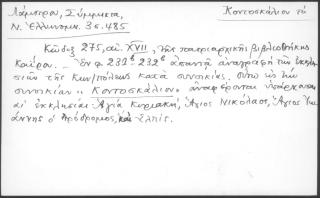 Λάμπρου, Σύμμικτα, Κοντοσκάλιον τὸ
Ν. Ἑλληνομν. 3 σ. 485
Κῶδιξ 275, αἰ. XVII, τῆς πατριαρχικῆς βιβλιοθήκης
Καΐρου. - Ἐν φ. 232α-232β ἀπαντᾷ ἀναγραφὴ τῶν ἐκκλη
σιῶν τῆς Κων/πόλεως κατὰ συνοικίας. οὕτω εἰς τὴν
συνοικίαν "Κοντοσκάλιον" ἀναφέρονται ὑπάρχουσαι
αἱ ἐκκλησίαι Ἁγία Κυριακή, Ἅγιος Νικόλαος, Ἅγιος Ἰω
άννης ὁ Πρόδρομος, καὶ Ἐλπίς.